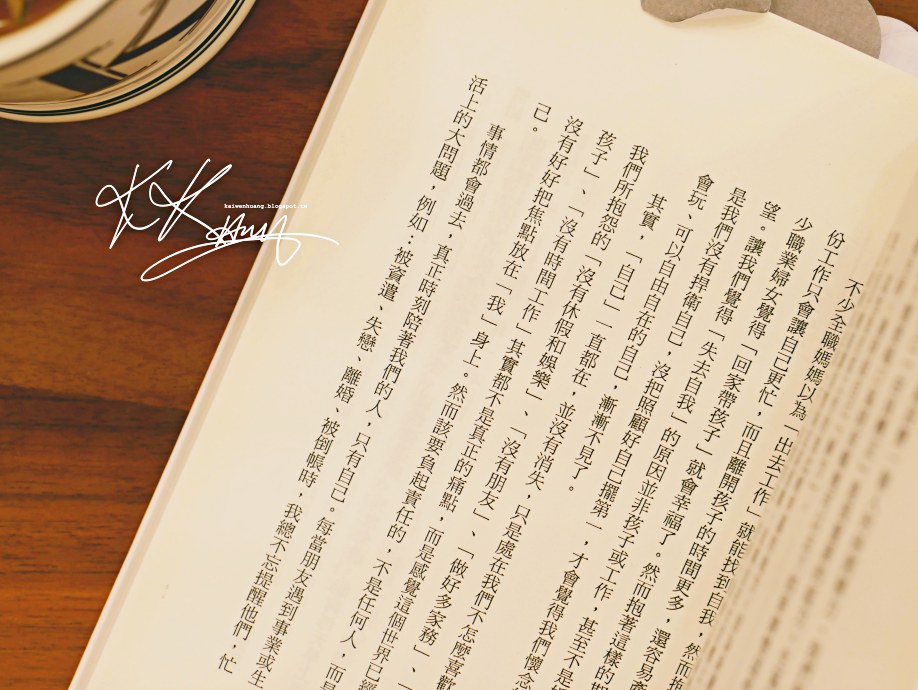 不少全職媽媽以為「出去工作」就能找到自我，然而抱
份工作只會讓自己更忙，而且離開孩子的時間更多，還容易產
少職業婦女覺得「回家帶孩子」就會幸福了。然而抱著這樣的期
望。讓我們覺得「失去自我」的原因並非孩子或工作，甚至不是
是我們沒有捍衛自己，沒把照顧好自己擺第一，才會覺得我們懷念
會玩、可以自由自在的自己，漸漸不見了。
其實，「自己」一直都在，並沒有消失，只是處在我們不怎麼喜歡
我們所抱怨的「沒有休假和娛樂」、「沒有朋友」、「做好多家務」、「
孩子」、「沒有時間工作」其實都不是真正的痛點，而是感覺這個世界已經
沒有好好把焦點放在「我」身上。然而該要負起責任的，不是任何人，而是
己。
事情都會過去，真正時刻陪著我們的人，只有自己。每當朋友遇到事業或生
活上的大問題，例如：被資遣、失戀、離婚、被倒帳時，我總不忘提醒他們，忙
kaiwenhuang.blogspot.tw